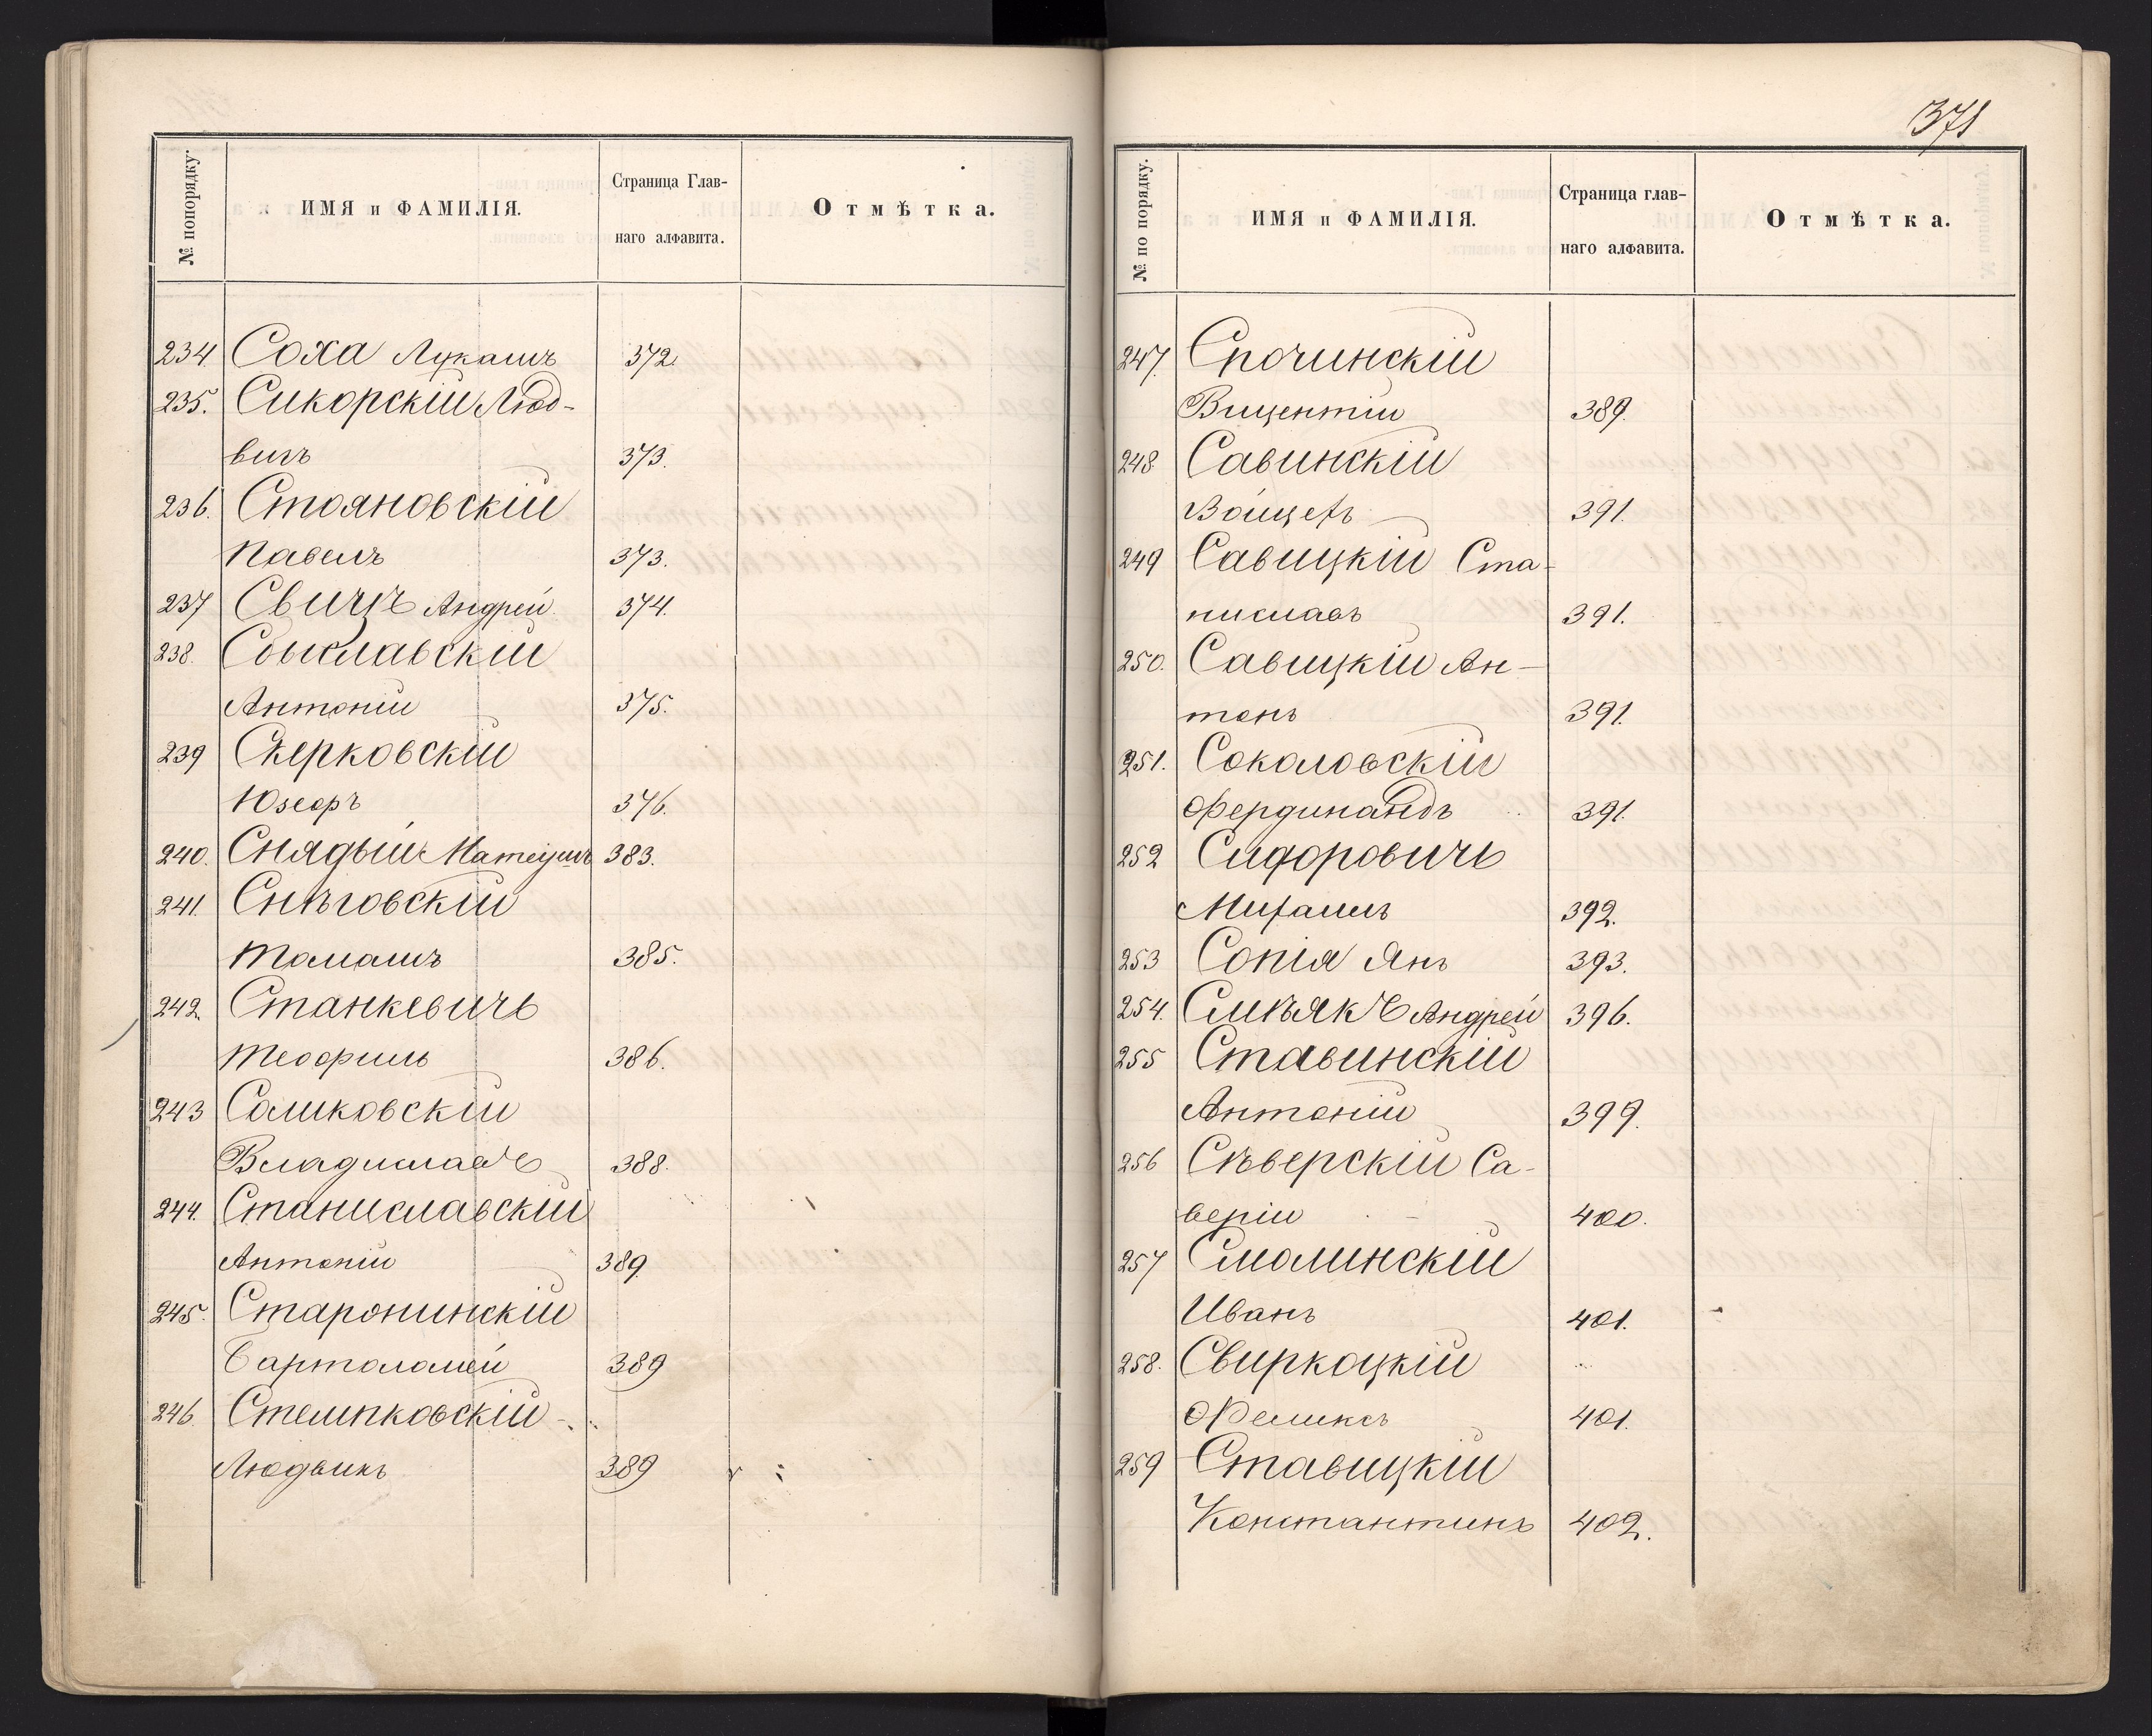 № попорядку.
ИМЯ и ФАМИЛІЯ.
Страница Глав-
наго алфавита.
Отмѣтка.
234. Соха Лукашъ 372.
235. Сикорскій Люд-
вигъ 373.
236. Стояновскій
Павелъ 373.
237 Свичъ Андрей 374.
238. Собыславскій
Антоній 375.
239 Скерковскій
Юзефъ 376.
240. Снядый Матеушъ 383.
241. Снѣговскій
Томашъ 385.
242. Станкевичъ
Теофиль 386.
243 Соликовскій
Владиславъ 388.
244. Станиславскій
Антоній 389.
245. Старонинскій
Бартоломей 389
246. Стемпковскій
Людвикъ 389
371
№ по порядку.
ИМЯ и ФАМИЛІЯ.
Страница глав-
наго алфавита.
Отмѣтка.
247. Спочинскій
Вицентій 389.
248. Савинскій
Войцехъ 391.
249 Савицкій Ста-
ниславъ 391.
250. Савицкій Ан-
тонъ 391.
251. Соколовскій
Фердинандъ 391.
252 Сидоровичъ
Михаилъ 392.
253 Сопія Янъ 393.
254. Андрей 396.
255 Ставинскій
Антоній 399.
256 Сѣверскій Са-
верій 400.
257 Смолинскій
Иванъ 401.
258. Свиркоцкій
Феликсъ 401.
259 Ставицкій
Константинъ 402.